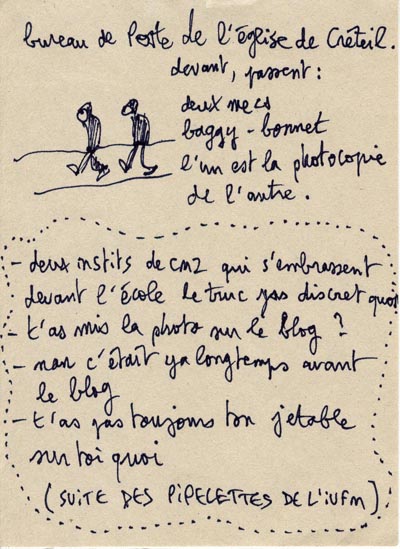 bureau de Poste de l'église de Créteil.
devant, passent :
deux mecs
baggy - bonnet
l'un est la photocopie
de l'autre.
- deux instits de cm2 qui s'embrassent
devant l'école le truc pas discret quoi
- t'as mis la photo sur le blog ?
- nan c'était ya longtemps avant
le blog
- t'as pas toujours ton jetable
sur toi quoi
(SUITE DES PIPELETTES DE L'IUFM)